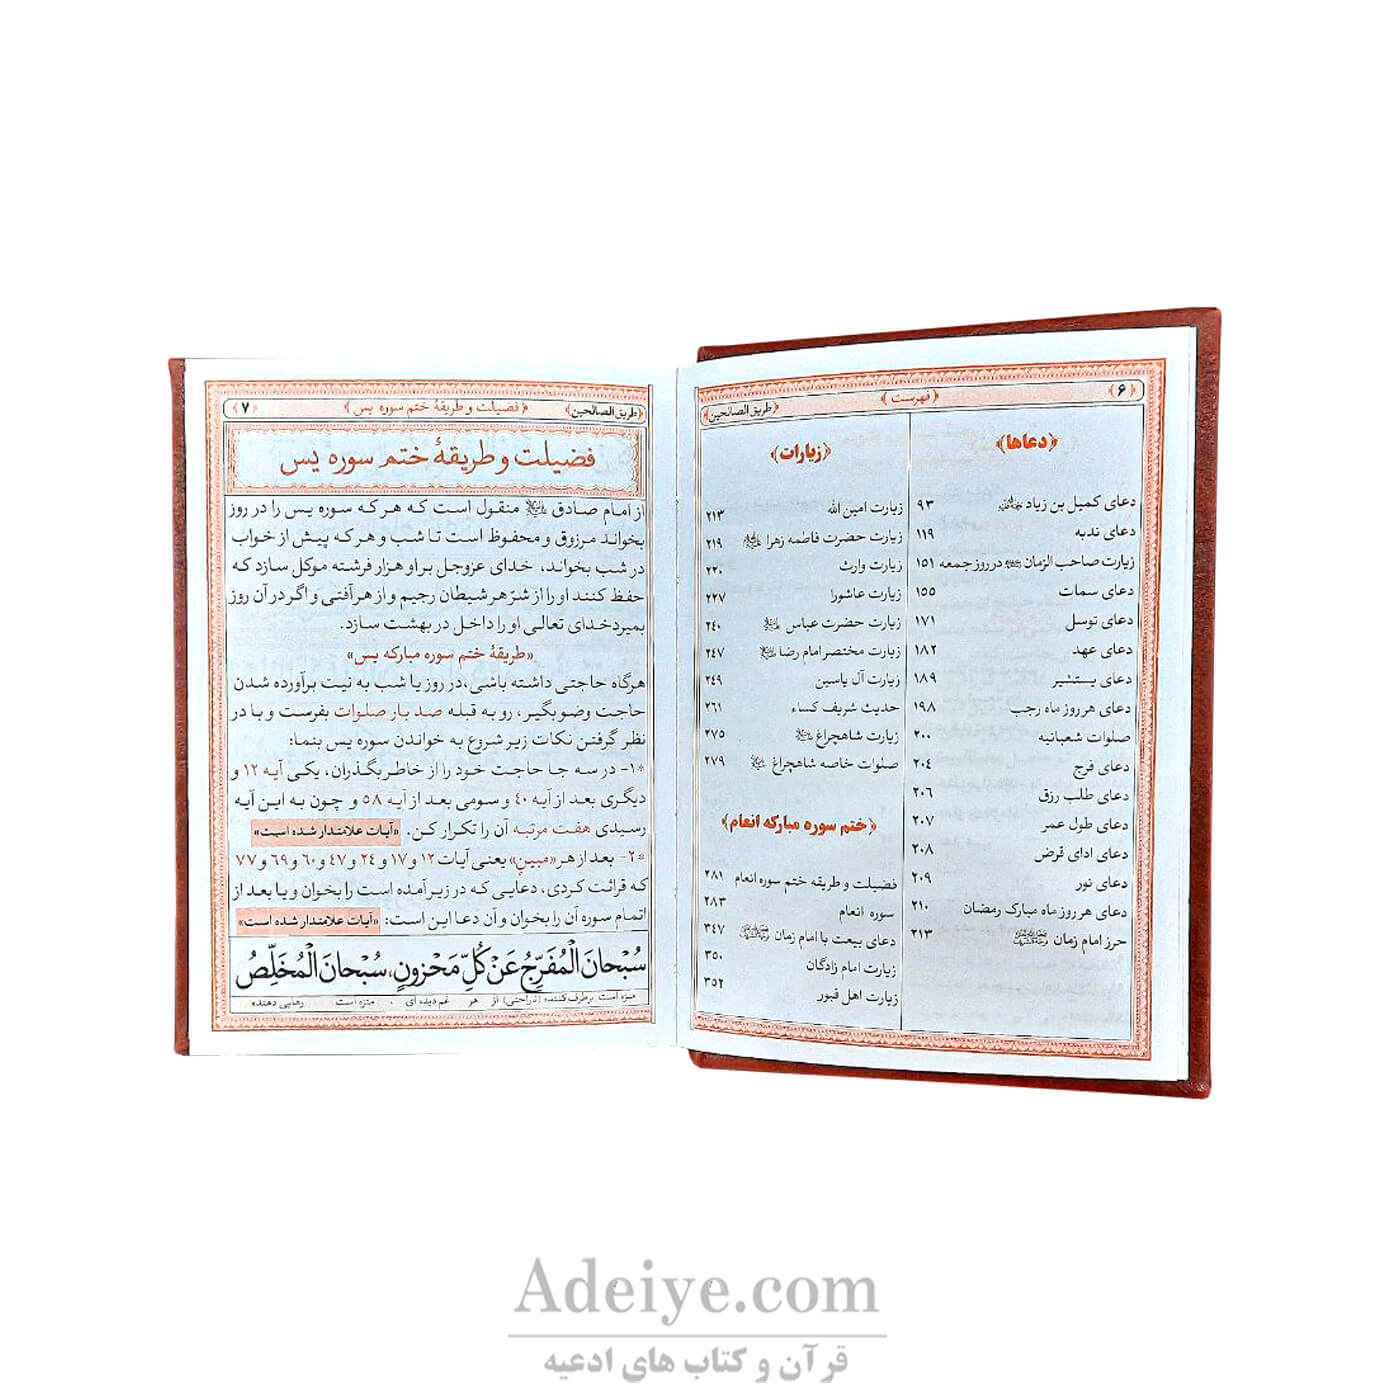 ﴿۶﴾
﴿فهرست﴾
﴿طریق الصالحین﴾
﴿دعاها﴾
دعای کمیل بن زیاد ۹۳
دعای ندبه ۱۱۹
زیارت صاحب الزمان در روز جمعه ۱۵۱
دعای سمات ۱۵۵
دعای توسل ۱۷۱
دعای عهد ۱۸۲
دعای یستشیر ۱۸۹
دعای هر روز ماه رجب ۱۹۸
صلوات شعبانیه ۲۰۰
دعای فرج ۲۰۴
دعای طلب رزق ۲۰۶
دعای طول عمر ۲۰۷
دعای ادای قرض ۲۰۸
دعای نور ۲۰۹
دعای هر روز ماه مبارک رمضان ۲۱۰
حرز امام زمان ۲۱۳
﴿زیارات﴾
زیارت امین الله ۲۱۳
زیارت حضرت فاطمه زهرا ۲۱۹
زیارت وارث ۲۲۰
زیارت عاشورا ۲۲۷
زیارت حضرت عباس ۲۴۰
زیارت مختصر امام رضا ۲۴۷
زیارت آل یاسین ۲۴۹
حدیث شریف کساء ۲۶۱
زیارت شاهچراغ ۲۷۵
صلوات خاصه شاهچراغ ۲۷۹
﴿ختم سوره مبارکه انعام﴾
فضیلت و طریقه ختم سوره انعام ۲۸۱
سوره انعام ۲۸۳
دعای بیعت با امام زمان ۳۴۷
زیارت امام زادگان ۳۵۰
زیارت اهل قبور ۳۵۲
﴿طریق الصالحین﴾
﴿فضیلت و طریقهٔ ختم سوره یس﴾
﴿۷﴾
فضیلت و طریقهٔ ختم سوره یس
از امام صادق منقول است که هر که سوره یس را در روز
بخواند مرزوق و محفوظ است تا شب و هر که پیش از خواب
در شب بخواند، خدای عزوجل بر او هزار فرشته موکل سازد که
حفظ کنند او را از شرّ هر شیطان رجیم و از هر آفتی و اگر در آن روز
بمیرد خدای تعالی او را داخل در بهشت سازد.
«طریقهٔ ختم سوره مبارکه یس»
هرگاه حاجتی داشته باشی، در روز یا شب به نیت برآورده شدن
حاجت وضو بگیر، رو به قبله صد بار صلوات بفرست و با در
نظر گرفتن نکات زیر شروع به خواندن سوره یس بنما:
*۱- در سه جا حاجت خود را از خاطر بگذران، یکی آیه ۱۲ و
دیگری بعد از آیه ۴۰ و سومی بعد از آیه ۵۸ و چون به این آیه
رسیدی هفت مرتبه آن را تکرار کن. «آیات علامتدار شده است»
*۲- بعد از هر «مبین» یعنی آیات ۱۲ و ۱۷ و ۲۴ و ۴۷ و ۶۰ و ۶۹ و ۷۷
که قرائت کردی، دعایی که در زیر آمده است را بخوان و یا بعد از
اتمام سوره آن را بخوان و آن دعا این است: «آیات علامتدار شده است»
سُبْحانَ الْمُفَرِّجُ عَنْ كُلِّ مَحْزُونٍ، سُبْحانَ الْمُخَلِّصُ
منزه است برطرف کننده (ناراحتی) از هر غم دیده ای ، منزه است رهایی دهنده
Adeiye.com
قرآن و کتاب های ادعیه